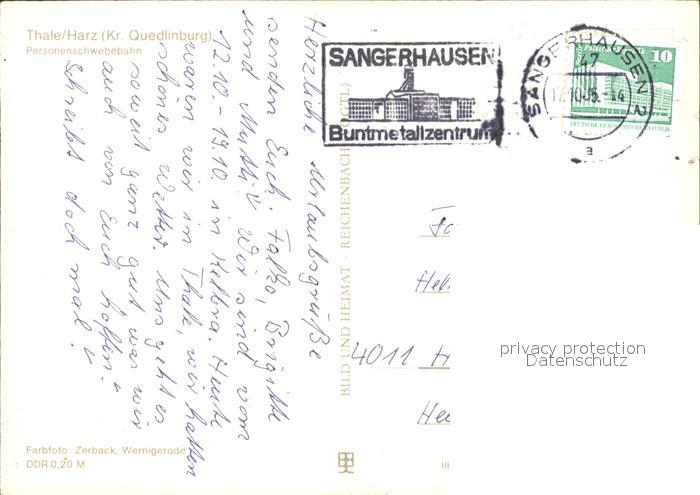 Thale/Harz (Kr. Quedlinburg)
Personenschwebebahn
Herzliche Urlaubsgrüße
senden Euch. Falko, Brigitte
und Mutti. Wir sind vom
12.10. - 19.10. in Kelbra. Heute
waren wir in Thale, wir hatten
schönes Wetter. Uns geht es
soweit ganz gut was wir
auch von Euch hoffen.
Schreibt doch mal!
Farbfoto: Zerback, Wernigerode
DDR 0,20 M
BILD UND HEIMAT - REICHENBACH (VOGTL)
SANGERHAUSEN
Buntmetallzentrum
SANGERHAUSEN 2
47
-14
a
10
DEUTSCHE DEMOKRATISCHE REPUBLIK
4011 H
privacy protection
Datenschutz
III